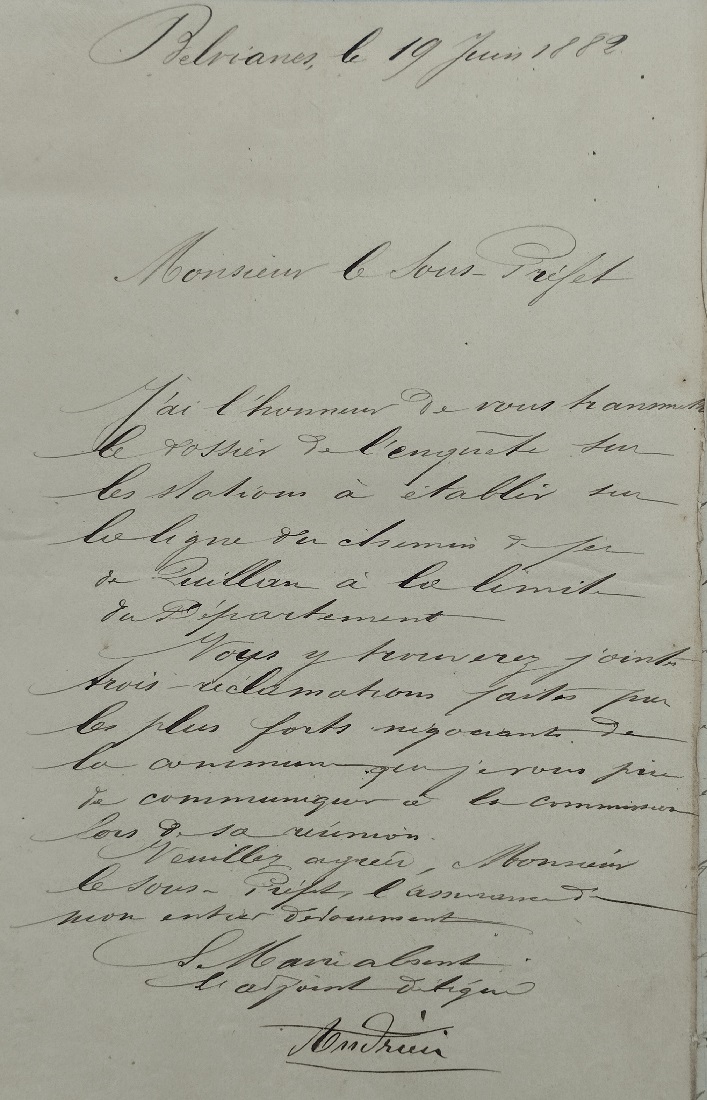 Belvianes, le 19 Juin 1882
Monsieur le Sous-Préfet
J'ai l'honneur de vous transmettre
le dossier de l'enquête sur
les stations à établir sur
la ligne du chemin de fer
de Quillan à la limite
du Département
Vous y trouverez jointes
trois réclamations faites par
les plus forts négociants de
la commune que je vous prie
de communiquer à la commission
lors de sa réunion.
Veuillez agréer, Monsieur
le Sous-Préfet, l'assurance de
mon entier dévouement
Le Maire absent
l'adjoint délégué
Andrieu